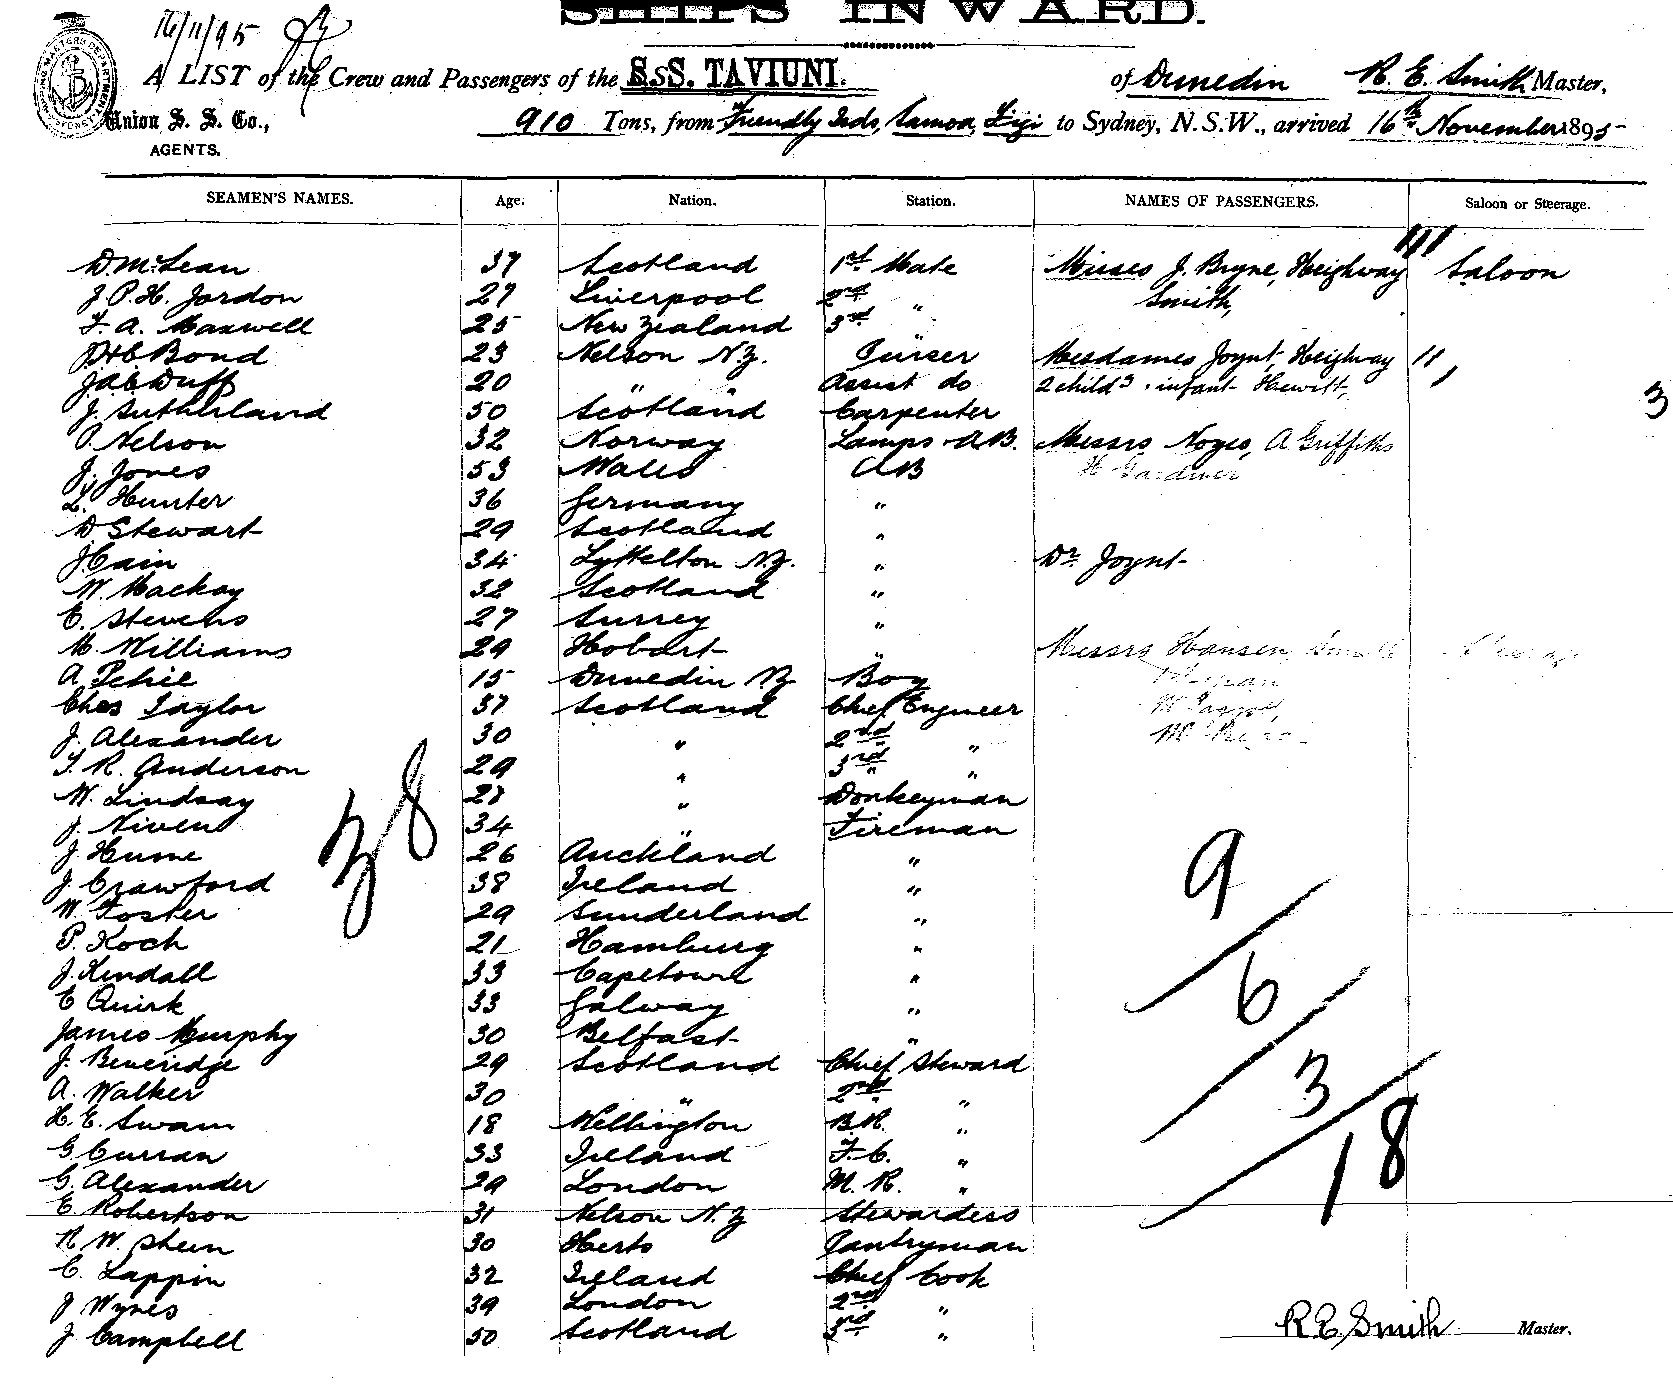 SHIPS INWARD.
16/11/95
A LIST of the Crew and Passengers of the S.S. TAVIUNI. of Dunedin R. E. Smith Master,
Union S. S. Co., 910 Tons, from Friendly Isds, Samoa, Fiji to Sydney, N.S.W., arrived 16th November 1895
AGENTS.
SEAMEN'S NAMES. Age. Nation. Station. NAMES OF PASSENGERS. Saloon or Steerage.
D. McLean 37 Scotland 1st Mate Misses J. Bryne, Heighway Saloon
J. P. H. Jordon 27 Liverpool 2nd " Smith,
F. A. Maxwell 25 New Zealand 3rd "
Bond 23 Nelson N.Z. Purser Mesdames Joynt, Heighway
Duff 20 " " Assist do 2 child infant Hewitt,
J. Sutherland 50 Scotland Carpenter 3
P. Nelson 32 Norway Lamps & A.B. Messrs Noyes, A Griffiths
J. Jones 53 Wales AB H Gardiner
L. Hunter 36 Germany "
D Stewart 29 Scotland "
J Cain 34 Lyttelton N.Z. " Dr Joynt
W. Mackay 32 Scotland "
E. Stevens 27 Surrey "
M. Williams 29 Hobart " Messrs Hansen,
A. 15 Dunedin NZ Boy
Chas Taylor 37 Scotland Chief Engineer
J. Alexander 30 " 2nd "
T. R. Anderson 29 " 3rd "
W. Lindsay 28 " Donkeyman
J. Niven 34 " Fireman
38
J. Hume 26 Auckland " 9
J. Crawford 38 Ireland "
W Foster 29 Sunderland "
P. Koch 21 Hamburg "
J. Kendall 33 Capetown " 6
E Quirk 33 Galway "
James Murphy 30 Belfast "
J. Beveridge 29 Scotland Chief Steward 3
A. Walker 30 " 2nd "
H. E. Swam 18 Wellington B.R. " 18
G Curran 33 Ireland F.C. "
G. Alexander 29 London M. R. "
E Robertson 31 Nelson N.Z Stewardess
R W. 30 Herts Pantryman
C. Lappin 32 Ireland Chief Cook
J Wynes 39 London 2nd "
J Campbell 50 Scotland 3rd " R E Smith Master.